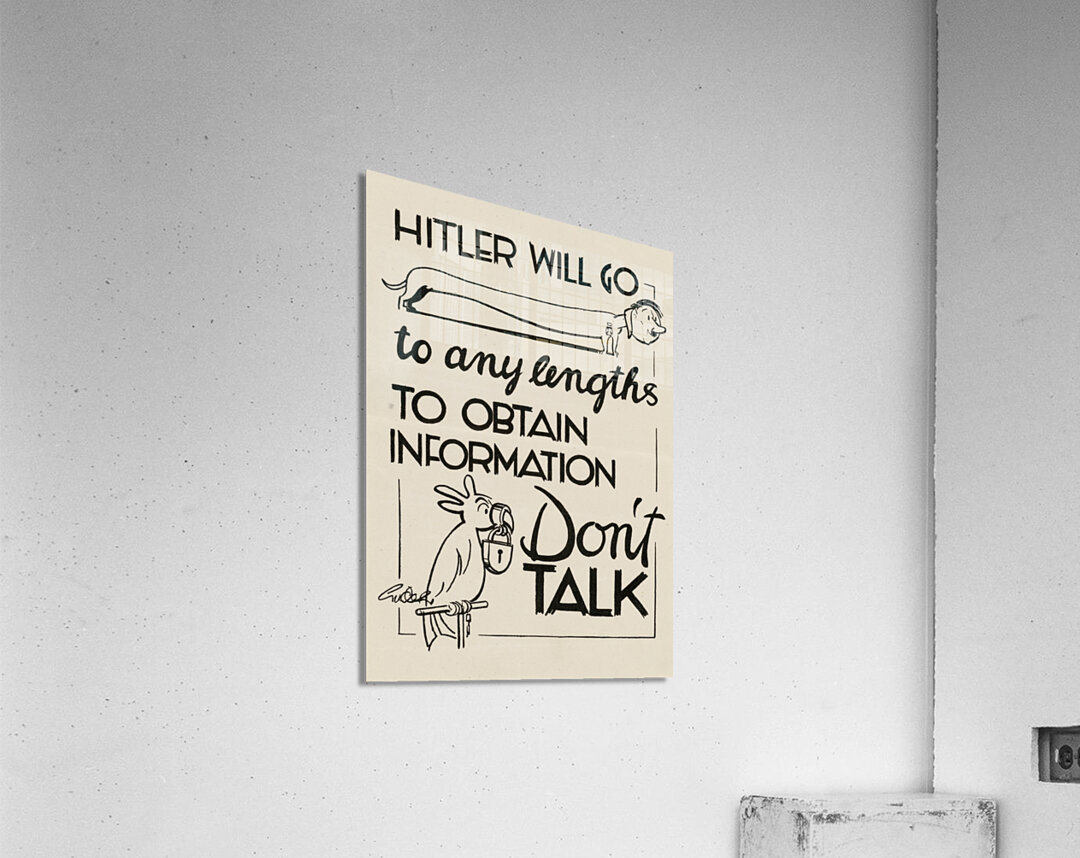 HITLER WILL GO
to any lengths
TO OBTAIN
INFORMATION
Don't
TALK